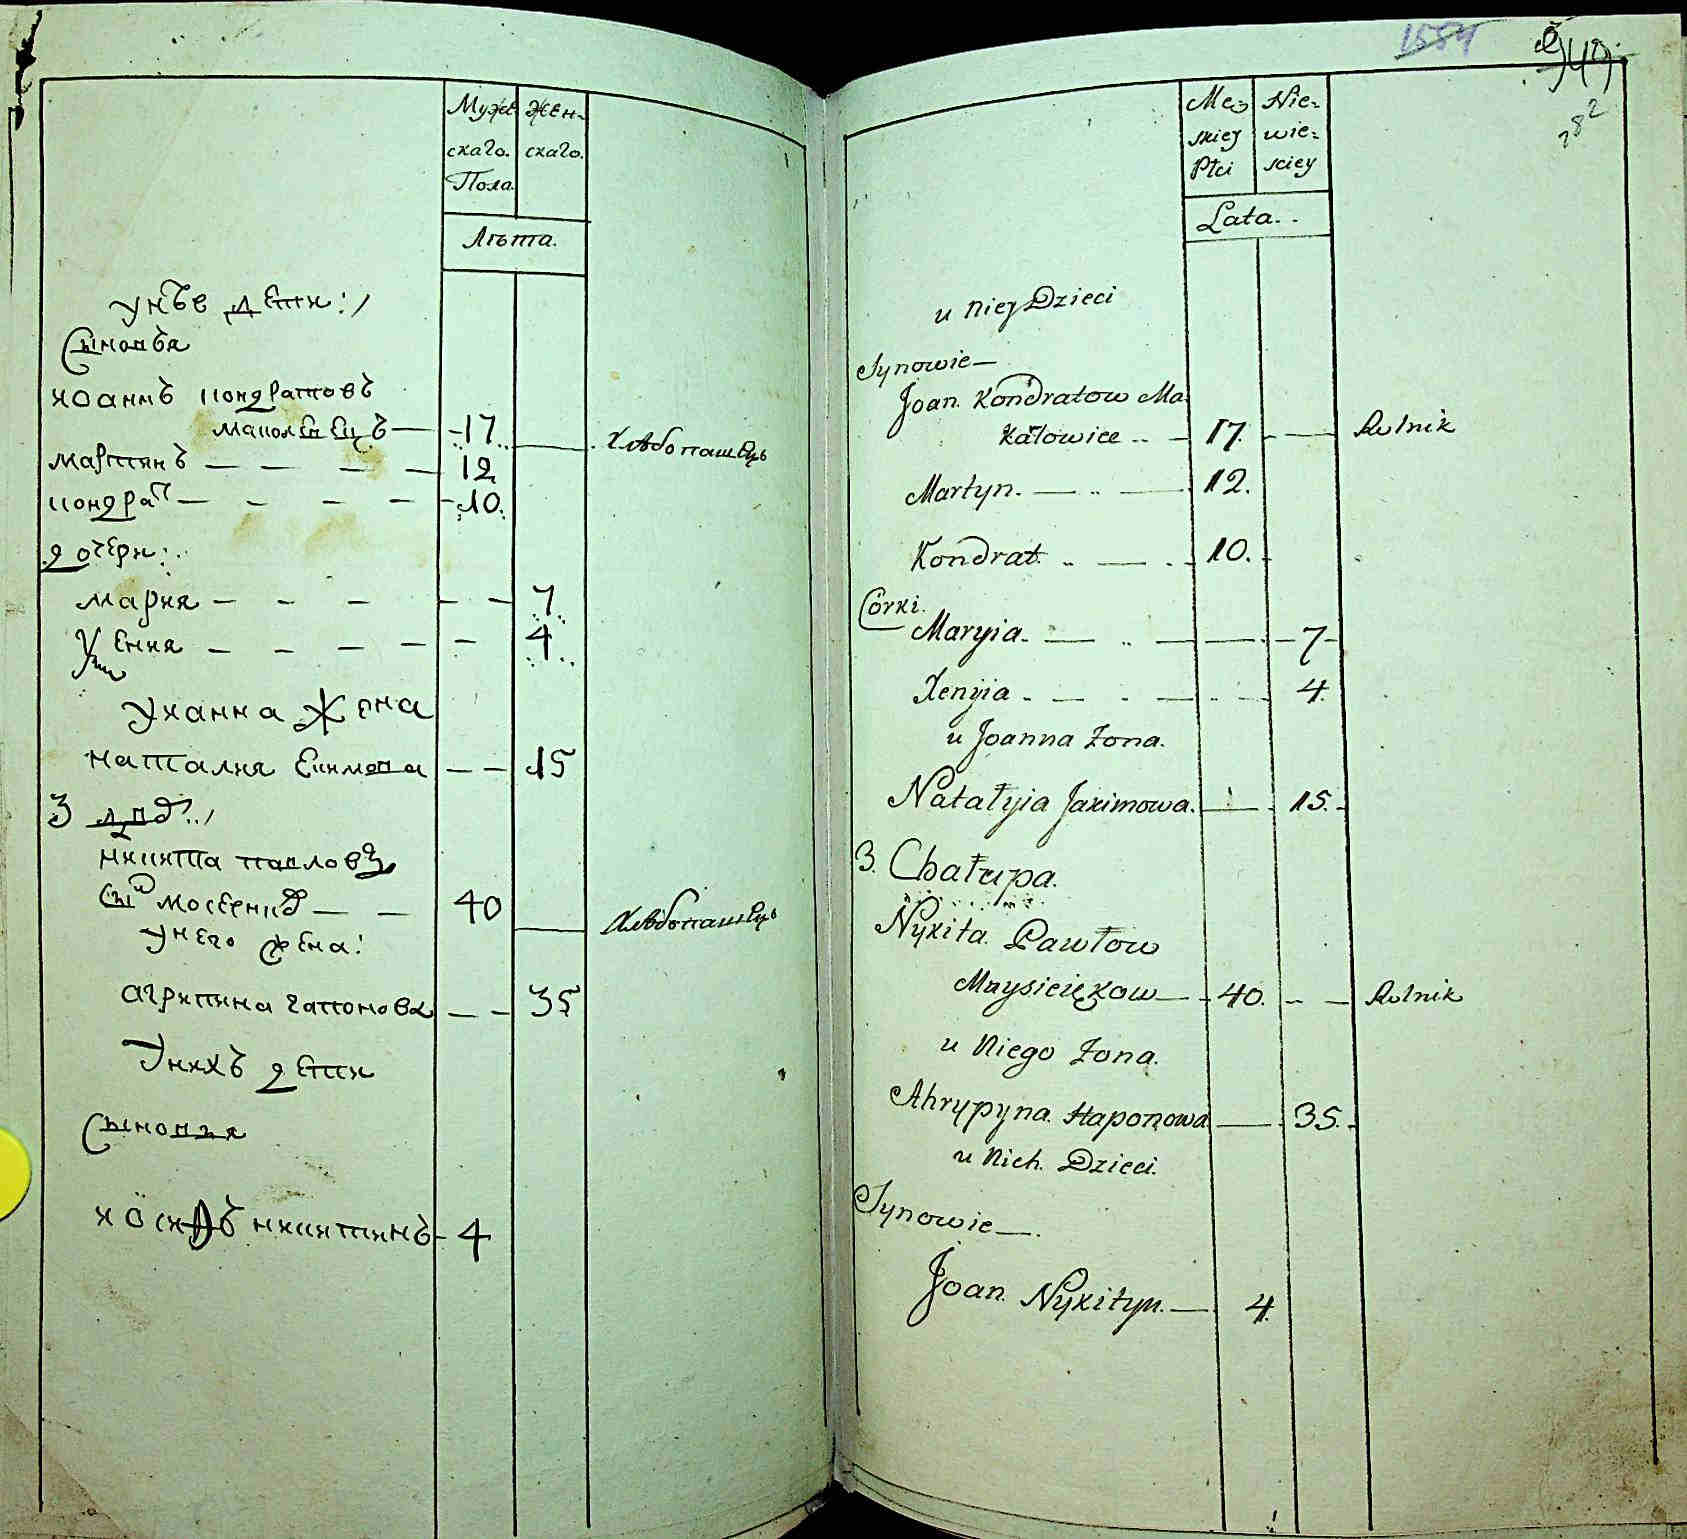 Муже Жен-
скаго. скаго.
Пола.
Лѣта.
унѣе дети:
Сыновья
Иоаннъ кондратовъ
17. Хлѣбопашецъ
мартинъ 12
кондрат 10.
дочери:
мария 7
4
уианна жена
наталия екимова 15
3
никита павловъ
сынъ 40 Хлѣбопашецъ
унего жена:
агрипина гапонова 35
Унихъ дети
Сыновья
никитинъ 4
1584
Męz Nie-
skiej wie-
Płci sciey
Lata..
u niej Dzieci
Synowie
Joan Kondratow Ma-
kałowiec 17. Rolnik
Martyn. 12.
Kondrat. 10.
Córki.
Maryia 7
Xenyia 4.
u Joanna Zona.
Natałyia Jakimowa. 15.
3. Chałupa.
Nykita Pawłow
40. Rolnik
u Niego Zona.
Ahrypyna Haponowa 35.
u Nich. Dzieci.
Synowie
Joan. Nykityn. 4.